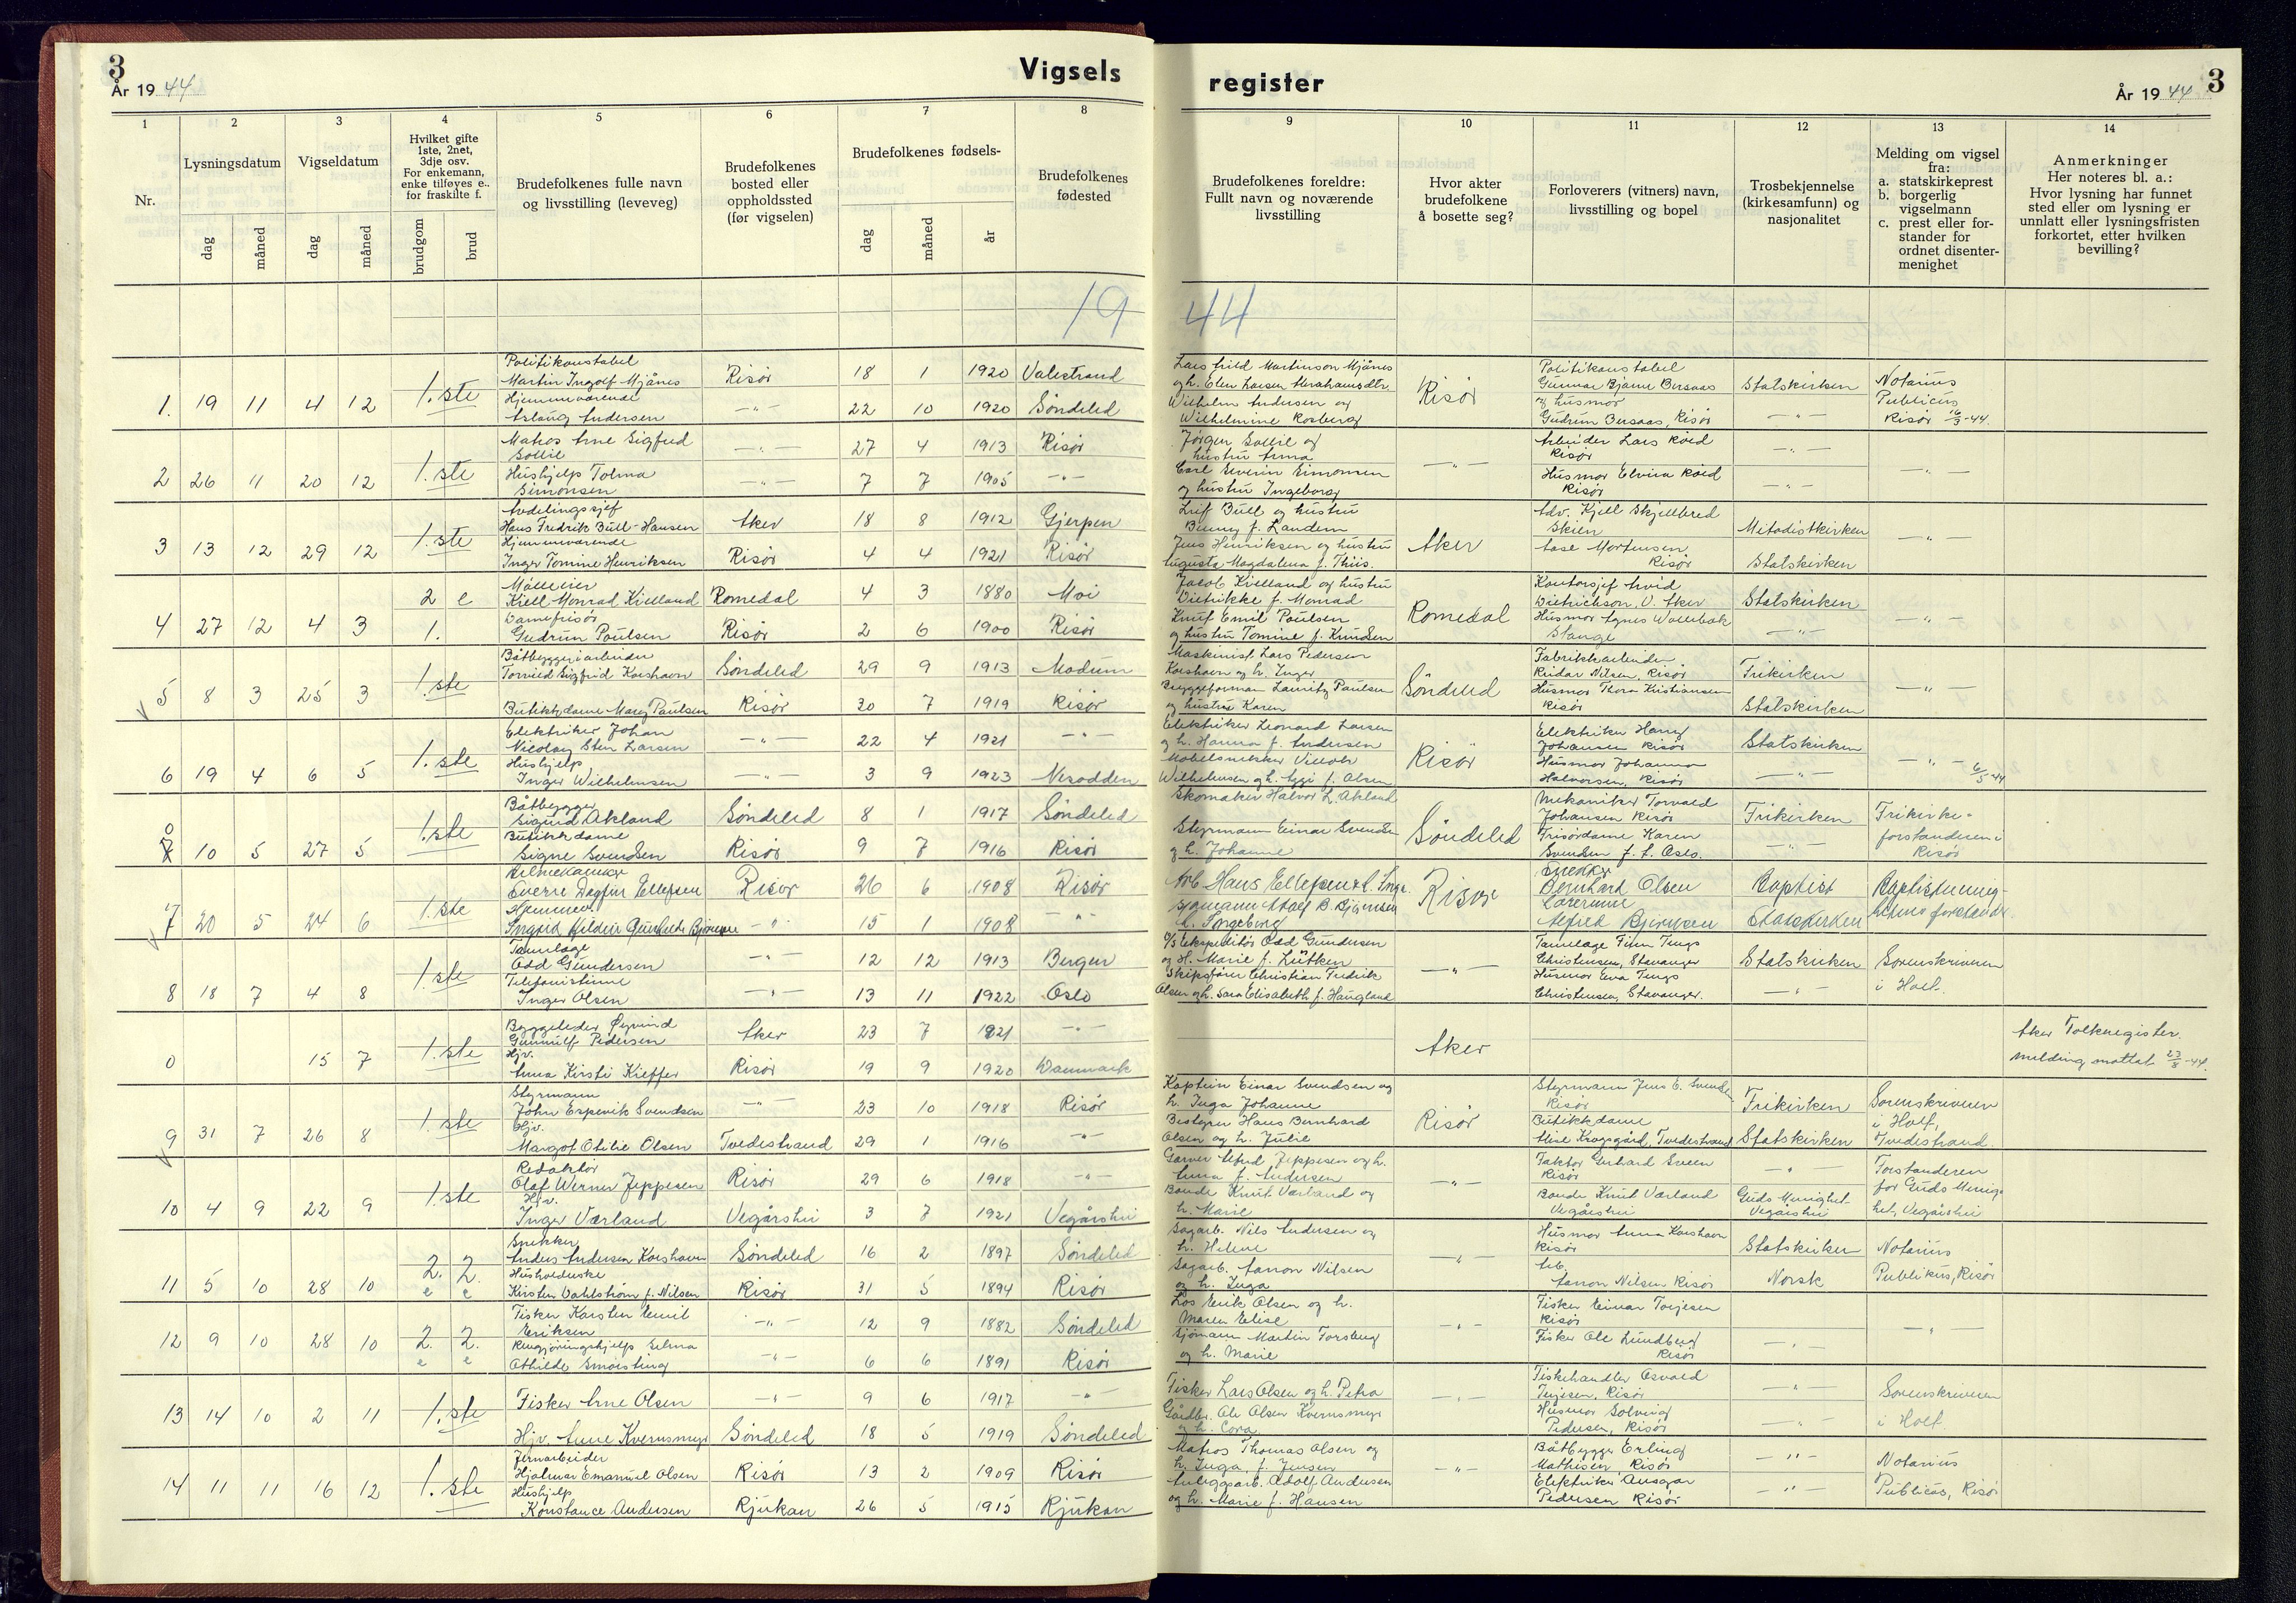 3
År 1944
Vigsels
register
År 1944
3
1
2
3
4
5
6
7
8
9
10
11
12
13
14
Nr.
Lysningsdatum
dag
måned
Vigseldatum
dag
måned
Hvilket gifte
1ste, 2net,
3dje osv.
For enkemann,
enke tilføyes e..
for fraskilte f.
brudgom
brud
Brudefolkenes fulle navn
og livsstilling (leveveg)
Brudefolkenes
bosted eller
oppholdssted
(før vigselen)
Brudefolkenes fødsels-
dag
måned
år
Brudefolkenes
fødested
Brudefolkenes foreldre:
Fullt navn og noværende
livsstilling
Hvor akter
brudefolkene
å bosette seg?
Forloverers (vitners) navn,
livsstilling og bopel
Trosbekjennelse
(kirkesamfunn) og
nasjonalitet
Melding om vigsel
fra:
a. statskirkeprest
b. borgerlig
vigselmann
c. prest eller for-
stander for
ordnet disenter-
menighet
Anmerkninger
Her noteres bl. a.:
Hvor lysning har funnet
sted eller om lysning er
unnlatt eller lysningsfristen
forkortet, etter hvilken
bevilling?
19 44
1. 19 11 4 12 1.ste
Politikonstabel
Martin Ingolf Mjånes Risør 18 1 1920 Valestrand
Hjemmeværende
Aslaug Andersen —"— 22 10 1920 Søndeled
Martinson Mjånes
Wilhelm Andersen og
Wilhelmine Rosberg
Risør
Politikonstabel
Gunnar Bjarne Bersaas
og husmor
Gudrun Bersaas, Risør
Statskirken
—"—
Notarius
Publicus
Risør 16/3-44.
2 26 11 20 12 1.ste
Matros Arne Sigfred
Sollie —"— 27 4 1913 Risør
Hushjelp Tolma
Simonsen —"— 7 7 1905 —"—
Jørgen Sollie og
hustru Anna
Carl Severin Simonsen
og hustru Ingeborg
—"—
Arbeider Lars Røed
Risør
Husmor Elvira Røed
Risør
—"—
—"—
—"—
3 13 12 29 12 1.ste
Avdelingssjef
Hans Fredrik Bull-Hansen Aker 18 8 1912 Gjerpen
Hjemmeværende
Inger Tomine Henriksen Risør 4 4 1921 Risør
Leif Bull og hustru
Benny f. Landem
Jens Henriksen og hustru
Augusta Magdalena f. Thiis.
Aker
Adv. Kjell Skjelbred
Skien
Aase Mortensen
Risør
Metodistkirken
Statskirken
—"—
4 27 12 4 3 2 e
1.
Mølleeier
Kiell Monrad Kielland Romedal 4 3 1880 Moi
Damefrisør
Gudrun Poulsen Risør 2 6 1900 Risør
Jacob Kielland og hustru
Dietrikke f. Monrad
Knut Emil Poulsen
og hustru Tomine f. Knudsen
Romedal
Kontorsjef Arvid
Dietrichson, V. Aker
Husmor Agnes Wollebæk
Stange
Statskirken
—"—
—"—
5 8 3 25 3 1.ste
Båtbyggeriarbeider
Torvild Sigfrid Korshavn Søndeled 29 9 1913 Modum
Butikkdame Mary Paulsen Risør 30 7 1919 Risør
Maskinist Lars Pedersen
Korshavn og h. Inger
Bryggeformann Lauritz Paulsen
og hustru Karen
Søndeled
Fabrikkarbeider
Reidar Nilsen, Risør
Husmor Thora Kristiansen
Risør
Frikirken
Statskirken
—"—
6 19 4 6 5 1.ste
Elektriker Johan
Nicolay Sten Larsen —"— 22 4 1921 —"—
Hushjelp
Inger Wilhelmsen —"— 3 9 1923 Nesodden
Elektriker Leonard Larsen
og h. Hanna f. Andersen
Møbelsnekker
Wilhelmsen og h. Aggi f. Olsen
Risør
Elektriker Harry
Johansen Risør
Husmor Johanna
Halvorsen, Risør
Statskirken
—"—
—"— 6/5-44
0
7 10 5 27 5 1.ste
Båtbygger
Sigurd Akland Søndeled 8 1 1917 Søndeled
Butikkdame
Signe Svendsen Risør 9 7 1916 Risør
Skomaker Halvor L. Akland
Styrmann Einar Svendsen
og h. Johanne
Søndeled
Mekaniker Torvald
Johansen Risør
Frisørdame Karen
Svendsen f. t. Oslo.
Frikirken
—"—
Frikirke-
forstanderen i
Risør
7 20 5 24 6 1.ste
Sverre Dagfin Ellefsen Risør 26 6 1908 Risør
Hjemmev.
Ingrid Bjørnsen —"— 15 1 1908 —"—
Arb Hans Ellefsen
Adolf B. Bjørnsen
h. Ingeborg
Risør
Snekker
Bernhard Olsen
Alfred Bjørnsen
Baptist
Statskirken
Baptistmenig-
hetens forstander.
8 18 7 4 8 1.ste
Tannlæge
Odd Gundersen —"— 12 12 1913 Bergen
Telefonistinne
Inger Olsen —"— 13 11 1922 Oslo
Ekspeditør Odd Gundersen
og H. Marie f. Lütken
Skipsfører Christian Fredrik
Olsen og h. Sara Elisabeth f. Haugland
—"—
Tannlæge Finn Tengs
Christensen, Stavanger
Husmor Eva Tengs
Christensen, Stavanger.
Statskirken
—"—
Sorenskriveren
i Holt.
0 15 7 1.ste
Byggeleder Øyvind
Gunnulf Pedersen Aker 23 7 1921 —"—
Hjv.
Anna Kirsti Kieffer Risør 19 9 1920 Danmark
Aker
Aker Folkeregister.
melding mottatt 23/8-44.
9 31 7 26 8 1.ste
Styrmann
John Espevik Svendsen —"— 23 10 1918 Risør
Hjv.
Margot Otilie Olsen Tvedestrand 29 1 1916 —"—
Kaptein Einar Svendsen og
h. Inga Johanne
Bestyrer Hans Bernhard
Olsen og h. Julie
Risør
Styrmann Jens E. Svendsen
Risør
Butikkdame
Else Krogsgård, Tvedestrand
Frikirken
Statskirken
Sorenskriveren
i Holt,
Tvedestrand.
10 4 9 22 9 1.ste
Redaktør
Olaf Werner Jeppesen Risør 29 6 1918 —"—
Hjv.
Inger Værland Vegårshei 3 7 1921 Vegårshei
Garver Alfred Jeppesen og h.
Anna f. Andersen
Bonde Knut Værland og
h. Marie
—"—
Faktor Gerhard Sveen
Risør
Bonde Knut Værland
Vegårshei
—"—
Guds Menighet
Vegårshei
Forstanderen
for Guds Menig-
het, Vegårshei
11 5 10 28 10 2. e 2. e
Snekker
Anders Andersen Korshavn Søndeled 16 2 1897 Søndeled
Husholderske
Kirsten Dahlstrøm f. Nilsen Risør 31 5 1894 Risør
Sagarb. Nils Andersen og
h. Helene
Sagarb. Aanon Nilsen
og h. Inga
—"—
Husmor Anna Korshavn
Risør
Arb.
Aanon Nilsen Risør
Statskirken
Norsk
Notarius
Publikus, Risør
12 9 10 28 10 2. e 2. e
Fisker Karsten Emil
Eriksen —"— 12 9 1882 Søndeled
Rengjøringshjelp Selma
Othilde Smørsting —"— 6 6 1891 Risør
Los Erik Olsen og h.
Maren Elise
Sjømann Martin Forsberg
og h. Marie
—"—
Fisker Einar Torjesen
Risør
Fisker Ole Lundberg
Risør
—"—
—"—
13 14 10 2 11 1.ste
Fisker Arne Olsen —"— 9 6 1917 —"—
Hjv. Anne Kvernsmyr Søndeled 18 5 1919 Søndeled
Fisker Lars Olsen og h. Petra
Gårdbr. Ole Olsen Kvernsmyr
og h. Cora
—"—
Fiskehandler Osvald
Terjesen, Risør
Husmor Solveig
Pedersen, Risør
—"—
—"—
Sorenskriveren
i Holt
14 11 11 16 12 1.ste
Jernarbeider
Hjalmar Emanuel Olsen Risør 13 2 1909 Risør
Hushjelp
Konstance Andersen Rjukan 26 5 1915 Rjukan
Matros Thomas Olsen og
h. Inga f. Jensen
Anleggsarb. Adolf Andersen
og h. Marie f. Hansen
—"—
Båtbygger Erling
Mathisen Risør
Elektriker Ansgar
Pedersen Risør
—"—
—"—
Notarius
Publicus, Risør